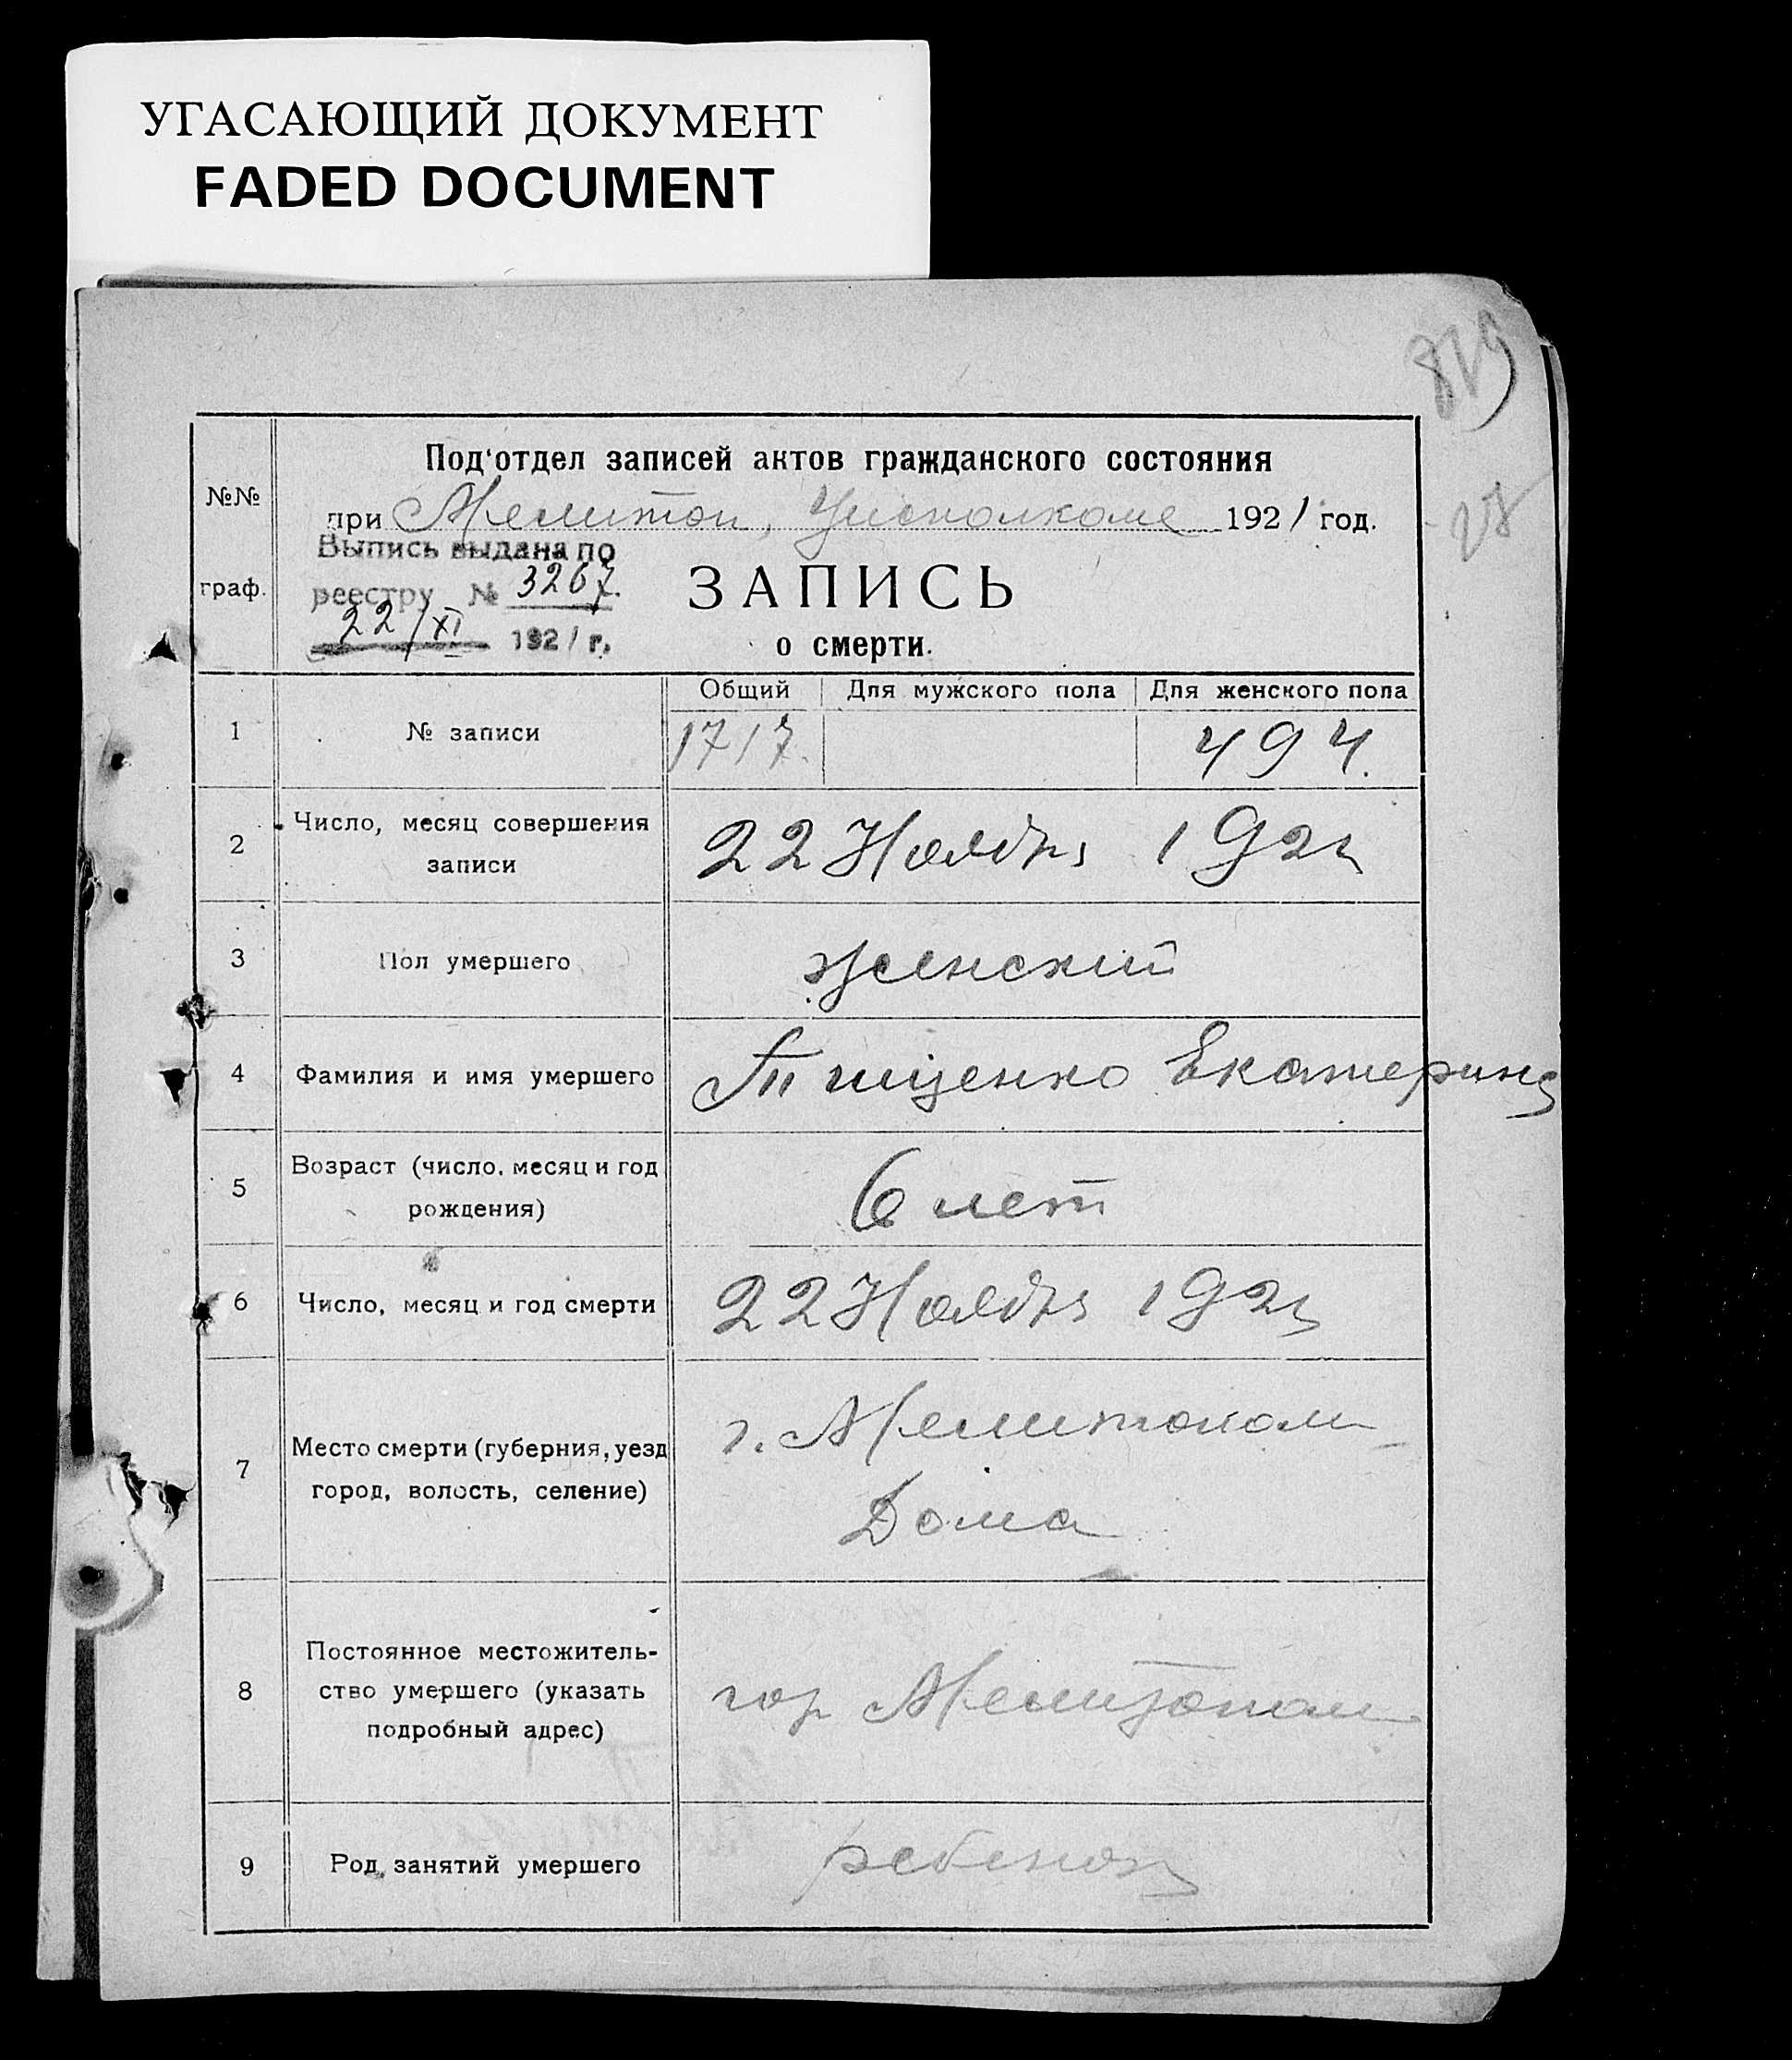 УГАСАЮЩИЙ ДОКУМЕНТ
FADED DOCUMENT
829
Под'отдел записей актов гражданского состояния
№№
при Мелитоп, Уисполкоме 1921 год.
28
Выпись выдана по
реестру № 3267.
граф.
ЗАПИСЬ
22/XI 1921 г.
о смерти.
Общий Для мужского пола Для женского пола
1 № записи 1717. 494.
2 Число, месяц совершения
записи 22 Ноября 1921
3 Пол умершего женский
4 Фамилия и имя умершего Тищенко Екатерина
5 Возраст (число, месяц и год
рождения) 6 лет
6 Число, месяц и год смерти 22 Ноября 1921
7 Место смерти (губерния, уезд
город, волость, селение)
г. Мелитополь
Дома
8 Постоянное местожитель-
ство умершего (указать
подробный адрес)
гор Мелитополь
9 Род занятий умершего ребенок